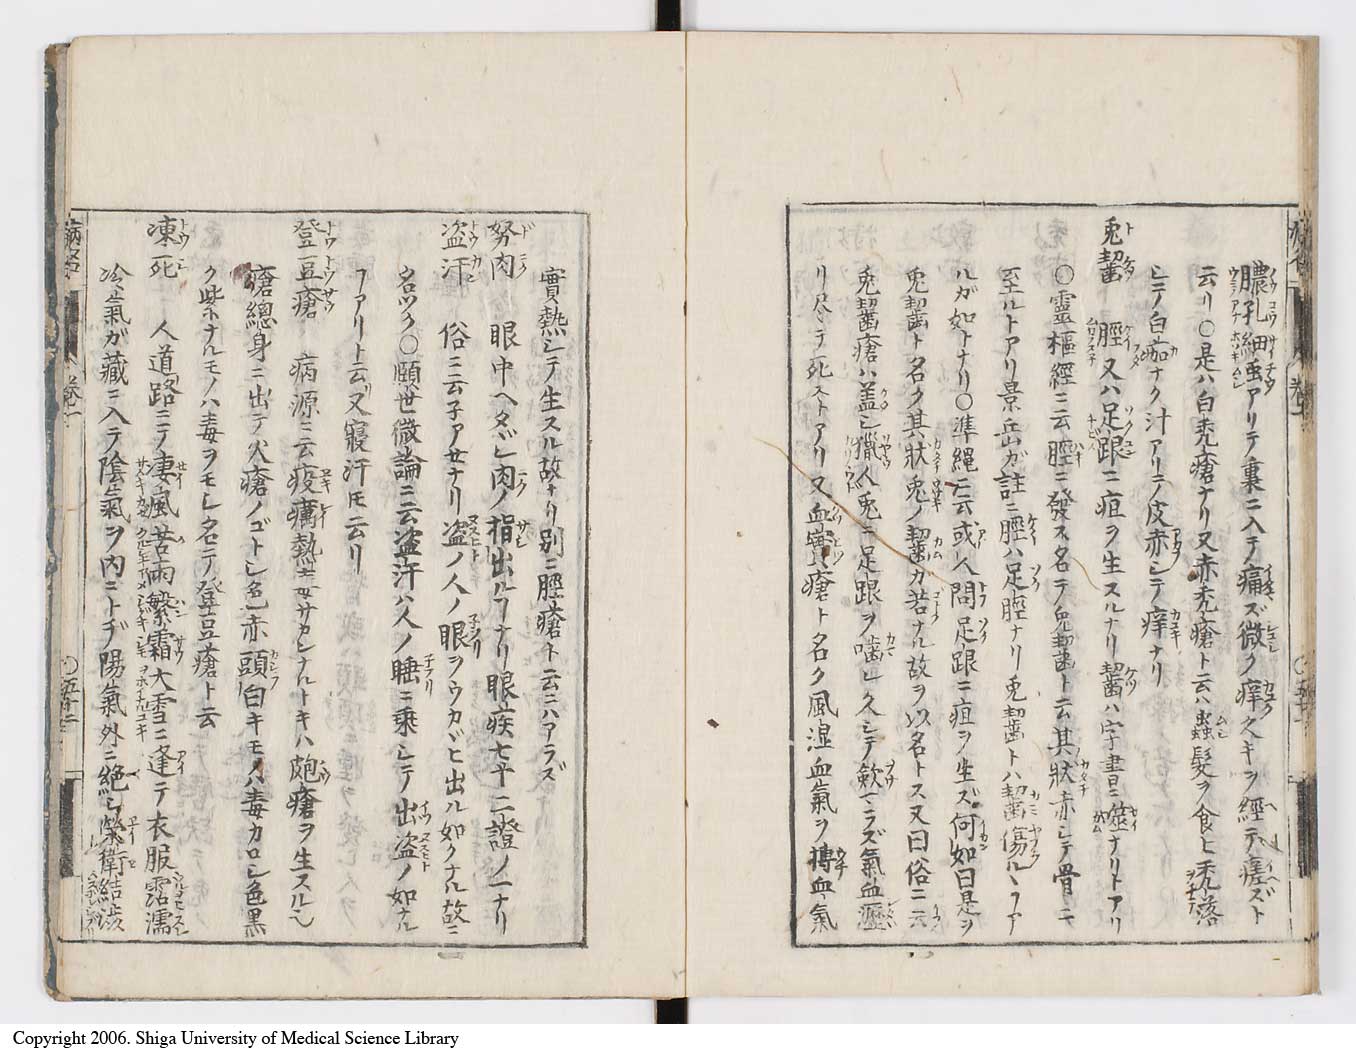 膿孔細虫アリテ裏ニ入テ痛ズ微ク痒久キヲ經テ瘥ズト
云リ〇是ハ白禿瘡ナリ又赤禿瘡ト云ハ蟲髪ヲ食ヒ禿落
シテ白痂ナク汁アリテ皮赤シテ痒ナリ
兎齧 脛又ハ足跟ニ疽ヲ生スルナリ齧ハ字書ニ噬ナリトアリ
〇靈樞經ニ云脛ニ發ス名テ兎齧ト云其狀赤シテ骨ニ
至ルトアリ景岳ガ註ニ脛ハ足脛ナリ兎齧トハ齧傷ルヽヿア
ルガ如トナリ〇準繩ニ云或人問足跟ニ疽ヲ生ズ何如曰是ヲ
兎齧ト名ク其狀兎ノ齧ガ若ナル故ヲ以名トス又曰俗ニ云
兎齧瘡ハ蓋シ獵人兎ニ足跟ヲ嚙レ久シテ斂マラズ氣血瀝
リ尽テ死ストアリ又血實瘡ト名ク風湿血氣ヲ搏血氣
實熱シテ生スル故ナリ別ニ脛瘡ト云ニハアラズ
努肉 眼中ヘタヾレ肉ノ指出ルヿナリ眼疾七十二證ノ一ナリ
盗汗 俗ニ云子アセナリ盗ノ人ノ眼ヲウカヾヒ出ル如クナル故ニ
名ツク〇頤世微論ニ云盗汗ハ人ノ睡ニ乘シテ出盗ノ如ナル
ヿアリト云ヘ又寝汗モ云リ
登豆瘡 病源ニ云疫癘熱毒サカンナルトキハ皰瘡ヲ生スルヿ
瘡總身ニ出テ火瘡ノゴトシ色赤頭白キモノハ毒カロシ色黒
ク紫ナルモノハ毒ヲモシ名テ登豆瘡ト云
凍死 人道路ニテ凄風苦雨繁霜大雪ニ逢テ衣服霑濡
冷氣ガ藏ニ入テ陰氣ヲ内ニトヂ陽氣外ニ絶シ榮衛結澁
卷一
〇五十二
Copyright 2006. Shiga University of Medical Science Library